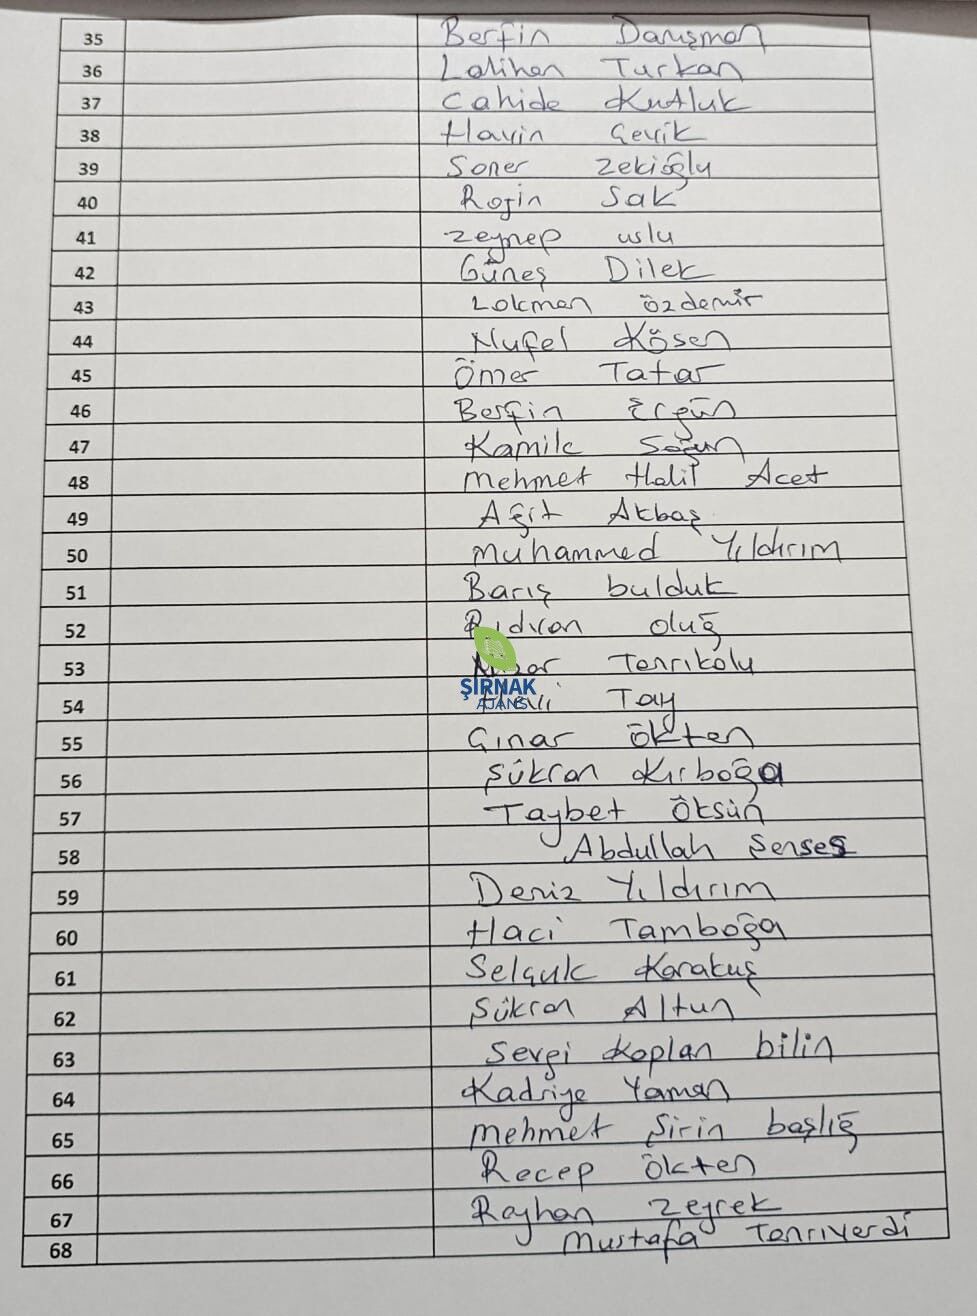 35 Berfin Danışman
36 Lalihan Turkan
37 Cahide Kutluk
38 Havin Çevik
39 Soner Zekioğlu
40 Rojin Sak
41 Zeynep uslu
42 Güneş Dilek
43 Lokman özdemir
44 Nufel Kösen
45 Ömer Tatar
46 Berfin Ergün
47 Kamile Soğun
48 Mehmet Halil Acet
49 Agit Akbaş
50 Muhammed Yıldırım
51 Barış bulduk
52 Rıdvan oluğ
53 Tanrıkolu
ŞIRNAK
54 Tay
AJANS
55 Çınar ökten
56 Şükran Kırboğa
57 Taybet Öksün
58 Abdullah Şenses
59 Deniz Yıldırım
60 Haci Tamboğa
61 Selçuk Karakuş
62 Şükran Altun
63 Sevgi Kaplan bilin
64 Kadriye Yaman
65 Mehmet Şirin başlığ
66 Recep ökten
67 Rayhan Zeyrek
68 Mustafa Tanrıverdi